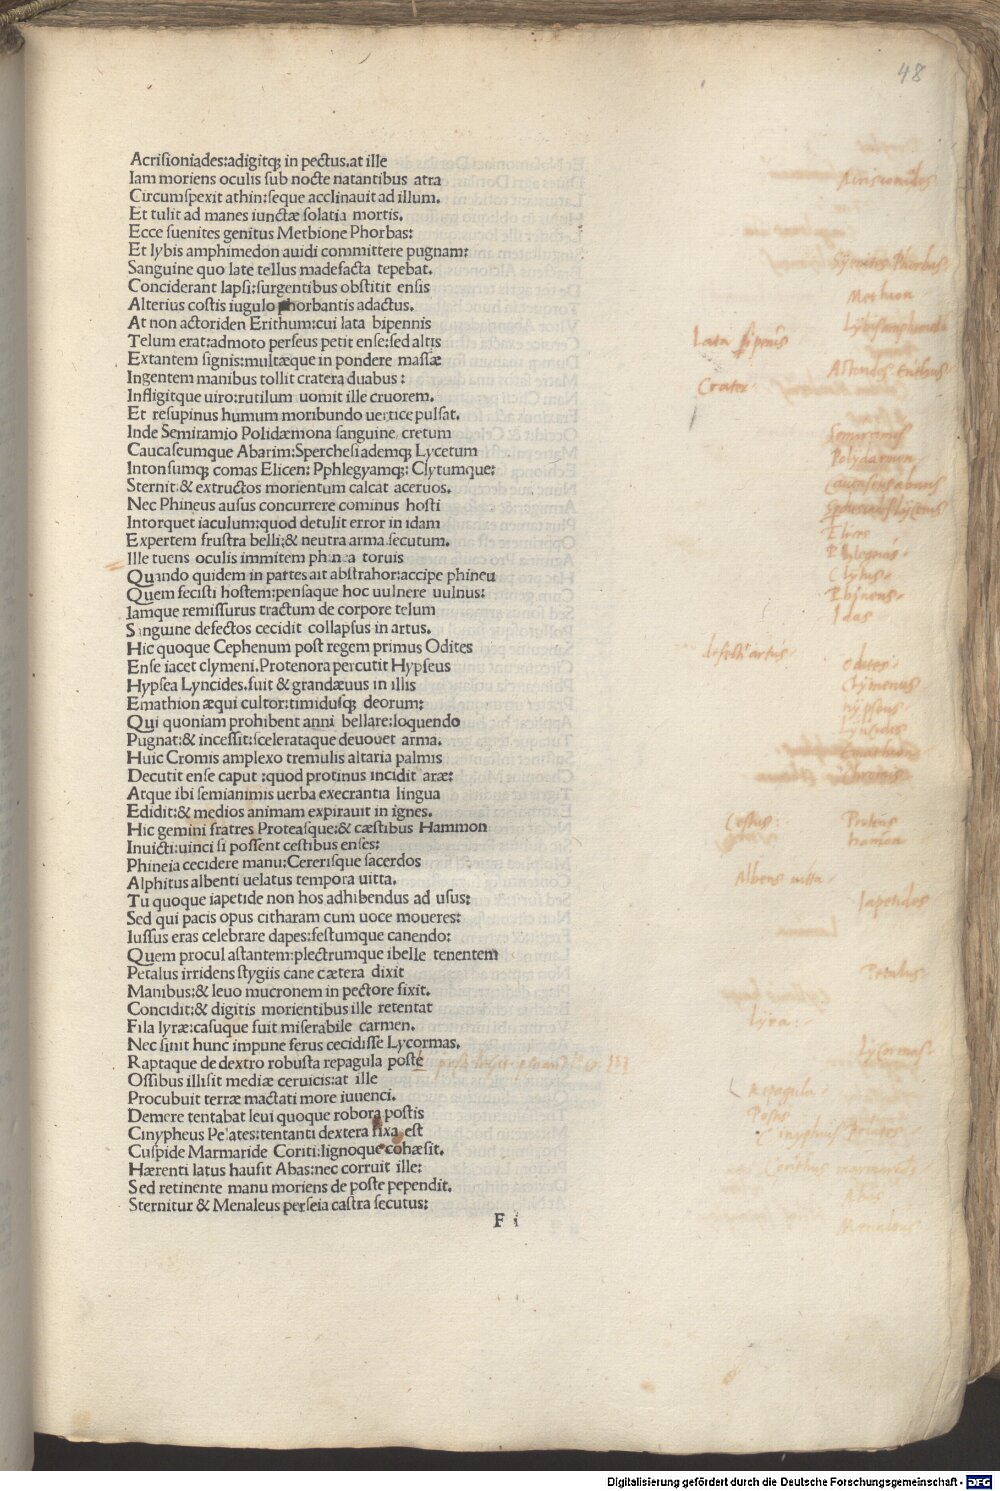 48
Acrisioniades:adigitq; in pectus.at ille
Iam moriens oculis sub nocte natantibus atra
Circumspexit athin:seque acclinauit ad illum.
Et tulit ad manes iunctæ solatia mortis.
Ecce suenites genitus Methione Phorbas:
Et lybis amphimedon auidi committere pugnam:
Sanguine quo late tellus madefacta tepebat.
Conciderant lapsi:surgentibus obstitit ensis
Alterius costis iugulo phorbantis adactus.
At non actoriden Erithum:cui lata bipennis
Telum erat:admoto perseus petit ense:sed altis
Extantem signis:multæque in pondere massæ
Ingentem manibus tollit cratera duabus :
Infligitque uiro:rutilum uomit ille cruorem.
Et resupinus humum moribundo uertice pulsat.
Inde Semiramio Polidæmona sanguine cretum
Caucaseumque Abarim:Sperchesiademq; Lycetum
Intonsumq; comas Elicen: Pphlegyamq; Clytumque:
Sternit:& extructos morientum calcat aceruos.
Nec Phineus ausus concurrere cominus hosti
Intorquet iaculum:quod detulit error in idam
Expertem frustra belli:& neutra arma secutum.
Ille tuens oculis immitem phinea toruis
Quando quidem in partes ait abstrahor:accipe phineu
Quem fecisti hostem:pensaque hoc uulnere uulnus:
Iamque remissurus tractum de corpore telum
Sanguine defectos cecidit collapsus in artus.
Hic quoque Cephenum post regem primus Odites
Ense iacet clymeni.Protenora percutit Hypseus
Hypsea Lyncides.fuit & grandæuus in illis
Emathion æqui cultor:timidusq; deorum:
Qui quoniam prohibent anni bellare:loquendo
Pugnat:& incessit:scelerataque deuouet arma.
Huic Cromis amplexo tremulis altaria palmis
Decutit ense caput :quod protinus incidit aræ:
Atque ibi semianimis uerba execrantia lingua
Edidit:& medios animam expirauit in ignes.
Hic gemini fratres Proteasque:& cæstibus Hammon
Inuicti:uinci si possent cestibus enses:
Phineia cecidere manu:Cererisque sacerdos
Alphitus albenti uelatus tempora uitta.
Tu quoque iapetide non hos adhibendus ad usus:
Sed qui pacis opus citharam cum uoce moueres:
Iussus eras celebrare dapes:festumque canendo:
Quem procul astantem:plectrumque ibelle tenentem
Petalus irridens stygiis cane cætera dixit
Manibus:& leuo mucronem in pectore fixit.
Concidit:& digitis morientibus ille retentat
Fila lyræ:casuque fuit miserabile carmen.
Nec sinit hunc impune ferus cecidisse Lycormas.
Raptaque de dextro robusta repagula poste
Ossibus illisit mediæ ceruicis:at ille
Procubuit terræ mactati more iuuenci.
Demere tentabat leui quoque robora postis
Cinypheus Pelates:tentanti dextera fixa est
Cuspide Marmaride Coriti:lignoque cohæsit.
Hærenti latus hausit Abas:nec corruit ille:
Sed retinente manu moriens de poste pependit.
Sternitur & Menaleus perseia castra secutus:
F i
Methion
Crater
Polydæmon
Clytus
Phineus
Idas
defecti artus
odites
Clymenus
hypseus
Cestus
Albens uitta
Iapetides
Petalus
lyra
Lycormas
Repagula
Postis
Abas
Menaleus
Digitalisierung gefördert durch die Deutsche Forschungsgemeinschaft - DFG